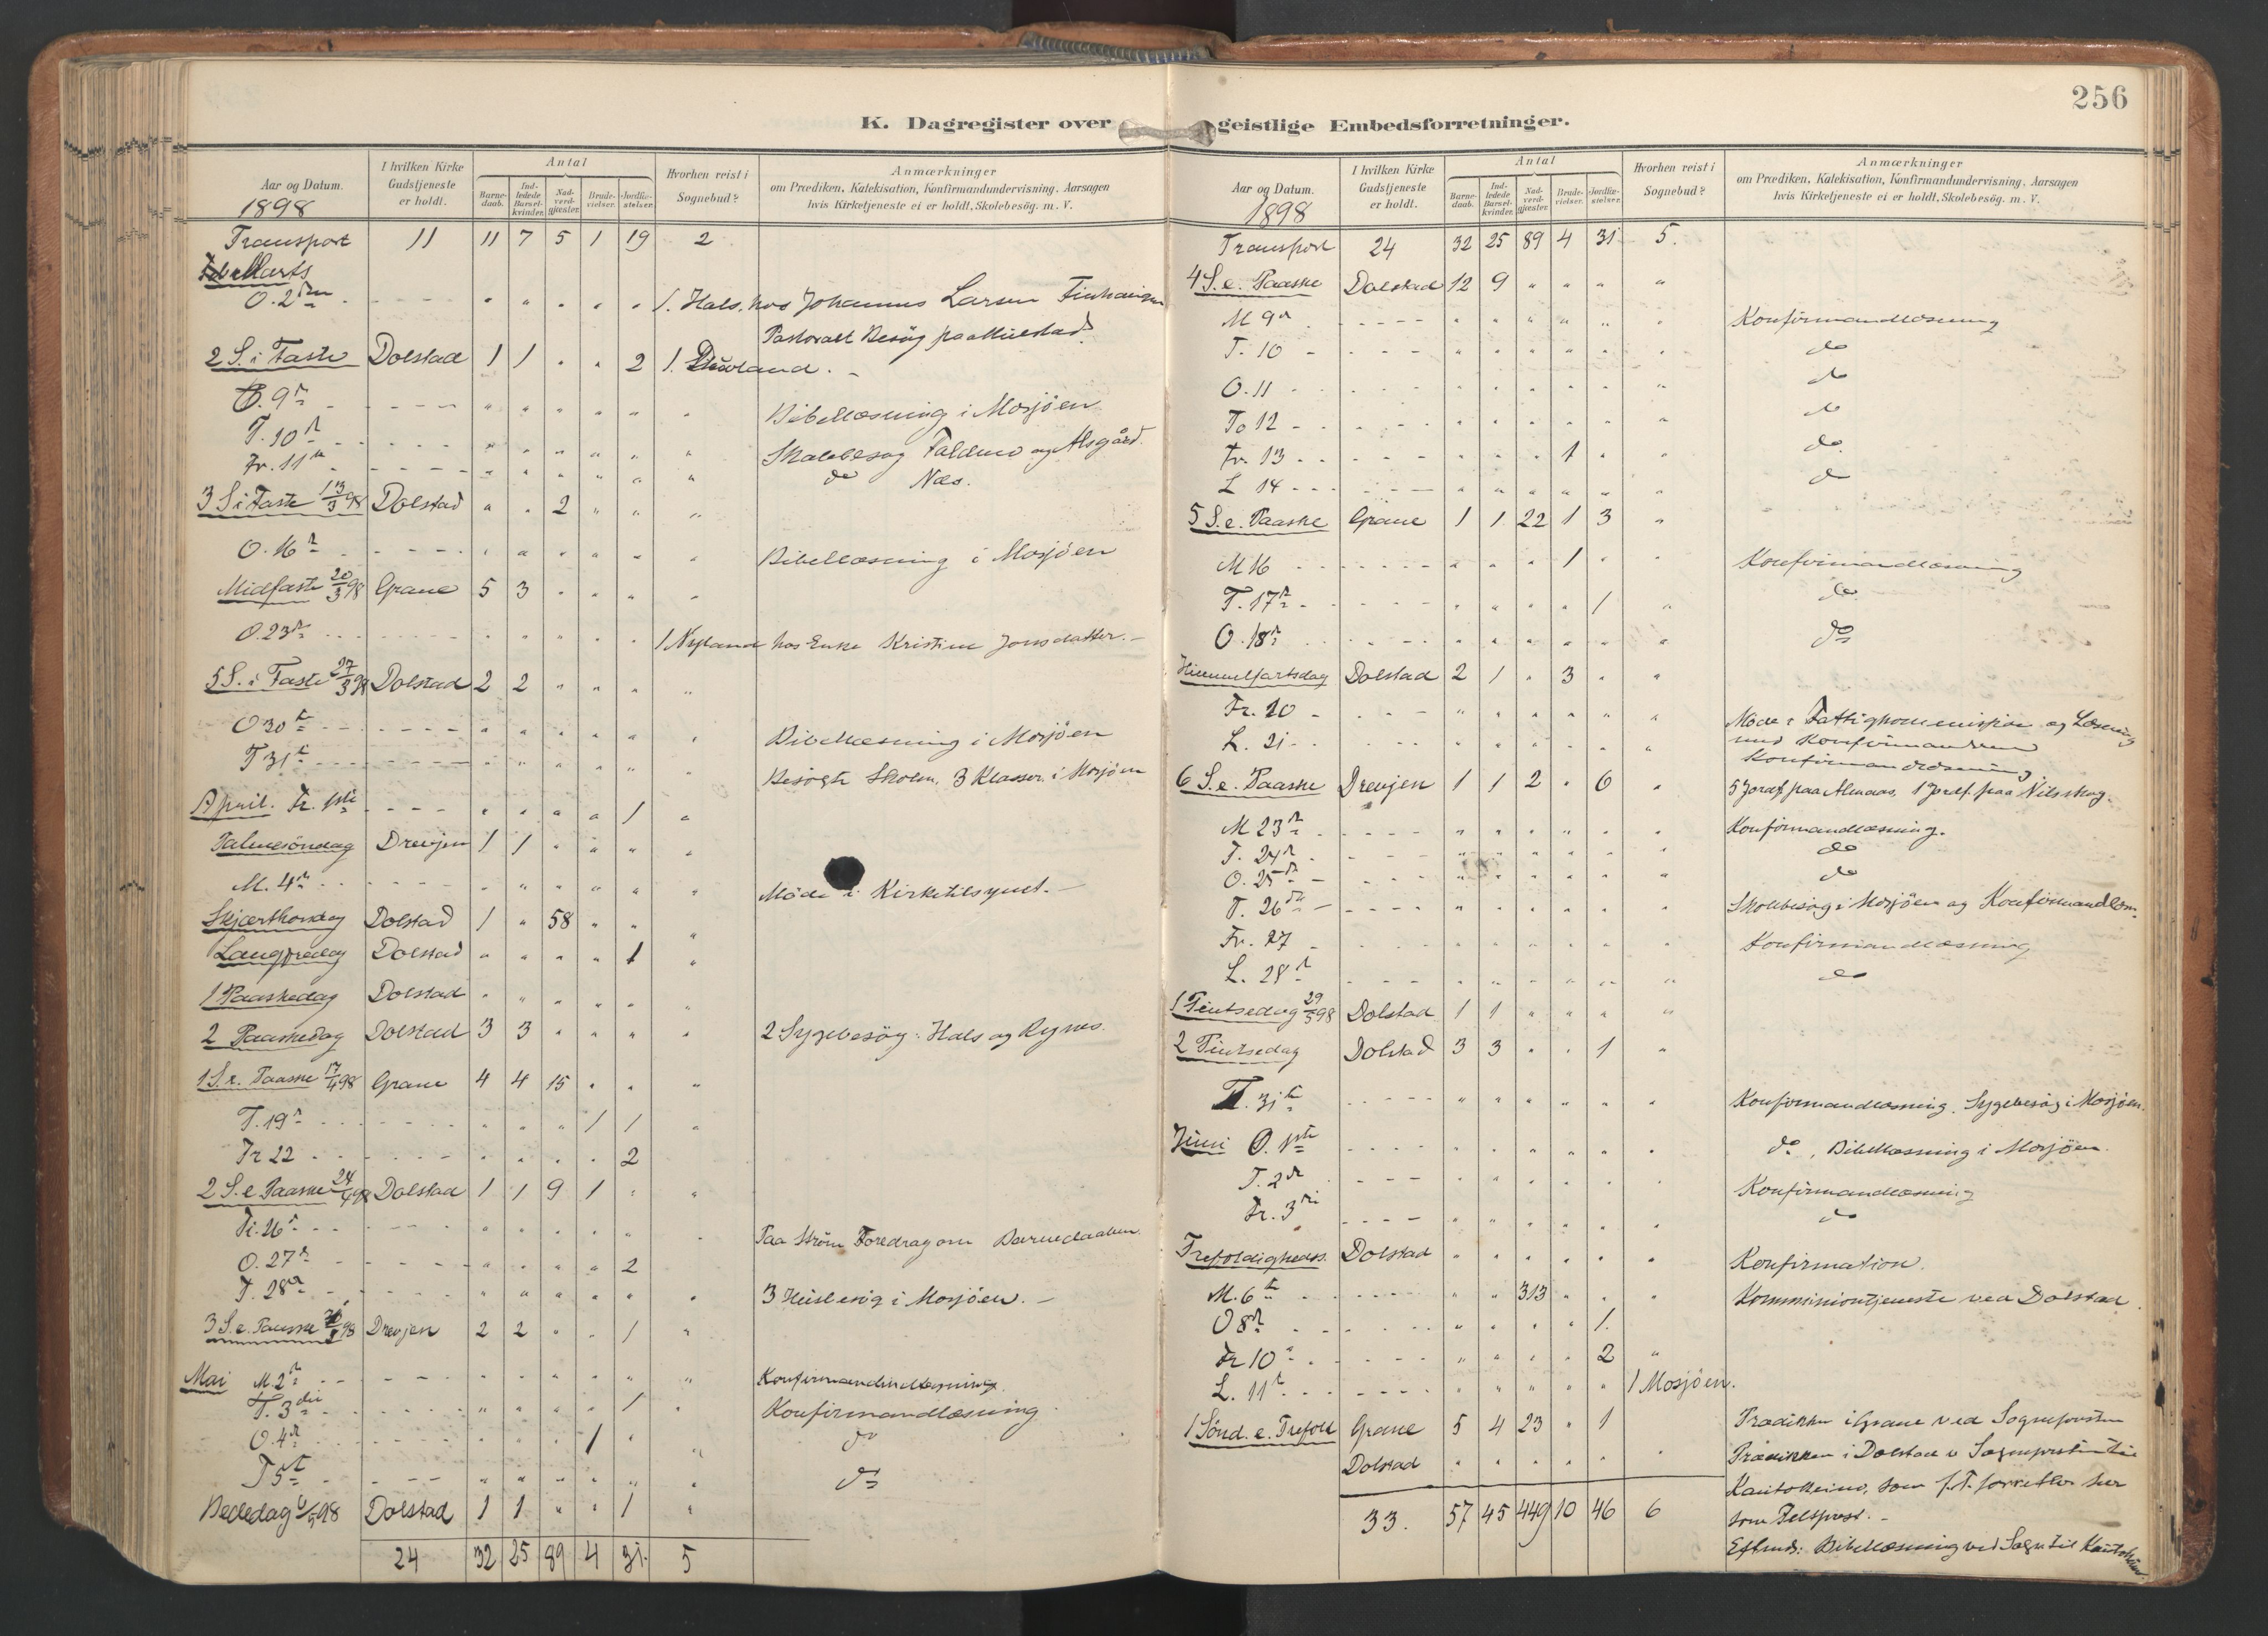 256
K. Dagregister over geistlige Embedsforretninger.
Aar og Datum. 1898 | I hvilken Kirke Gudstjeneste er holdt. | Antal | Barnedaab. | Indledede Barselkvinder. | Nadverdgjester. | Brudevielser. | Jordfæstelser. | Hvorhen reist i Sognebud? | Anmærkninger om Prædiken, Katekisation, Konfirmandundervisning, Aarsagen hvis Kirketjeneste ei er holdt, Skolebesög. m. V.
Transport 11 11 7 5 1 19 2
Marts
O. 2den - - - - " " " " " 1. Hals, hos Johannes Larsen
Pastoralt Besög paa
2 S. i Faste Dolstad 1 1 " " 2 1.
O. 9de - - - - " " " " " " Bibellæsning i Mosjöen
T. 10de - - - - " " " " " " Skolebesög og Alsgård.
Fr. 11te - - - - " " " " " " do Næs.
3 S i Faste 13/3 98 Dolstad " " 2 " " "
O. 16de - - - - " " " " " " Bibellæsning i Mosjöen
Midfaste 20/3 98 Grane 5 3 " " " "
O. 23de - - - - " " " " " 1 Nyland hos Enke Kristine Jonsdatter. -
5 S. i Faste 27/3 98 Dolstad 2 2 " " " "
O 30te - - - - " " " " " " Bibellæsning i Mosjöen
T 31te - - - - " " " " " " Besögte Skolen, 3 Klasser i Mosjöen
April. Fr. 1ste - - - - " " " " 1 "
Palmesöndag Drevjen 1 1 " " " "
M. 4de - - - - " " " " " " Möde i Kirketilsynet. -
Skjærthorsdag Dolstad 1 " 58 " " "
Langfredag Dolstad " " " " 1 "
1 Paaskedag Dolstad " " " " "
2 Paaskedag Dolstad 3 3 " " " " 2 Sygebesög: Hals og Rynes.
1 S. e. Paaske 17/4 98 Grane 4 4 15 " " "
T. 19de - - - - " " " 1 1 "
Fr 22 - - - - " " " " 2
2 S. e. Paaske 24/4 98 Dolstad 1 1 9 1 " "
Ti. 26de - - - - " " " " " " Paa Ström Foredrag om Barnedaaben.
O. 27de - - - - " " " " 2
T. 28de - - - - " " " " " " 3 Husbesög i Mosjöen. -
3 S. e. Paaske Drevjen 2 2 " " 1 "
Mai M. 2den - - - - " " " " " "
T. 3die - - - - " " " " 1 " Konfirmandlæsning.
O. 4de - - - - " " " 1 " " do
T 5te - - - - " " " " " " do
Bededag 6/5 98 Dolstad 1 1 " " 1 "
24 32 25 89 4 31. 5
Aar og Datum. 1898 | I hvilken Kirke Gudstjeneste er holdt. | Antal | Barnedaab. | Indledede Barselkvinder. | Nadverdgjester. | Brudevielser. | Jordfæstelser. | Hvorhen reist i Sognebud? | Anmærkninger om Prædiken, Katekisation, Konfirmandundervisning, Aarsagen hvis Kirketjeneste ei er holdt, Skolebesög. m. V.
Transport 24 32 25 89 4 31 5.
4 S. e. Paaske Dolstad 12 9 " " " "
M 9de - - - - " " " " " " Konfirmandlæsning
T. 10 - - - - " " " " " " do
O. 11 - - - - " " " " " " do
To 12 - - - - " " " " " " do
Fr. 13 - - - - " " " 1 " " do
L 14 - - - - " " " " " " do
5 S. e. Paaske Grane 1 1 22 1 3 "
M 16 - - - - " " " 1 " " Konfirmandlæsning
T. 17de - - - - " " " " 1 " do
O. 18de - - - - " " " " " " do
Himmelfartsdag Dolstad 2 1 " 3 " "
Fr. 20 - - - - " " " " " " Möde i Fattigkommission og Læsning
L. 21 - - - - " " " " " " med Konfirmanderne
Konfirmandlæsning
6 S. e. Paaske Drevjen 1 1 2 " 6 " 5 Jordf. paa Almaas, 1 Jordf. paa Nilsskog.
M 23de - - - - " " " " " " Konfirmandlæsning.
T. 24de - - - - " " " " " " do
O. 25de - - - - " " " " " " do
T. 26de - - - - " " " " " " Skolebesög i Mosjöen og Konfirmandlæsn.
Fr. 27 - - - - " " " " " " Konfirmandlæsning
L. 28de - - - - " " " " " " do
1 Pintsedag 29/5 98 Dolstad 1 1 " " " "
2 Pintsedag Dolstad 3 3 " " 1 "
T. 31te - - - - " " " " " " Konfirmandlæsning. Sygebesög i Mosjöen.
Juni O. 1ste - - - - " " " " " " do, Bibellæsning i Mosjöen.
T. 2den - - - - " " " " " " Konfirmandlæsning
Fr. 3die - - - - " " " " " " do
Trefoldigheds. Dolstad " " " " " " Konfirmation.
M. 6te - - - - " " 313 " " " Kommuniontjeneste ved Dolstad.
O 8de - - - - " " " " 1.
Fr 10de - - - - " " " " 2 "
L. 11te - - - - " " " " " 1 Mosjöen.
1 Sönd. e. Trefold Grane 5 4 23 " 1 Prædiken i Grane ved Sognepresten
Dolstad " " " " " Prædiken i Dolstad v Sognepresten til
Kautokeino, som f. T. forretter her
33. 57 45 449 10 46 6 som Feltprest. -
Eftmd: Bibellæsning ved Sogn til Kautokeino.